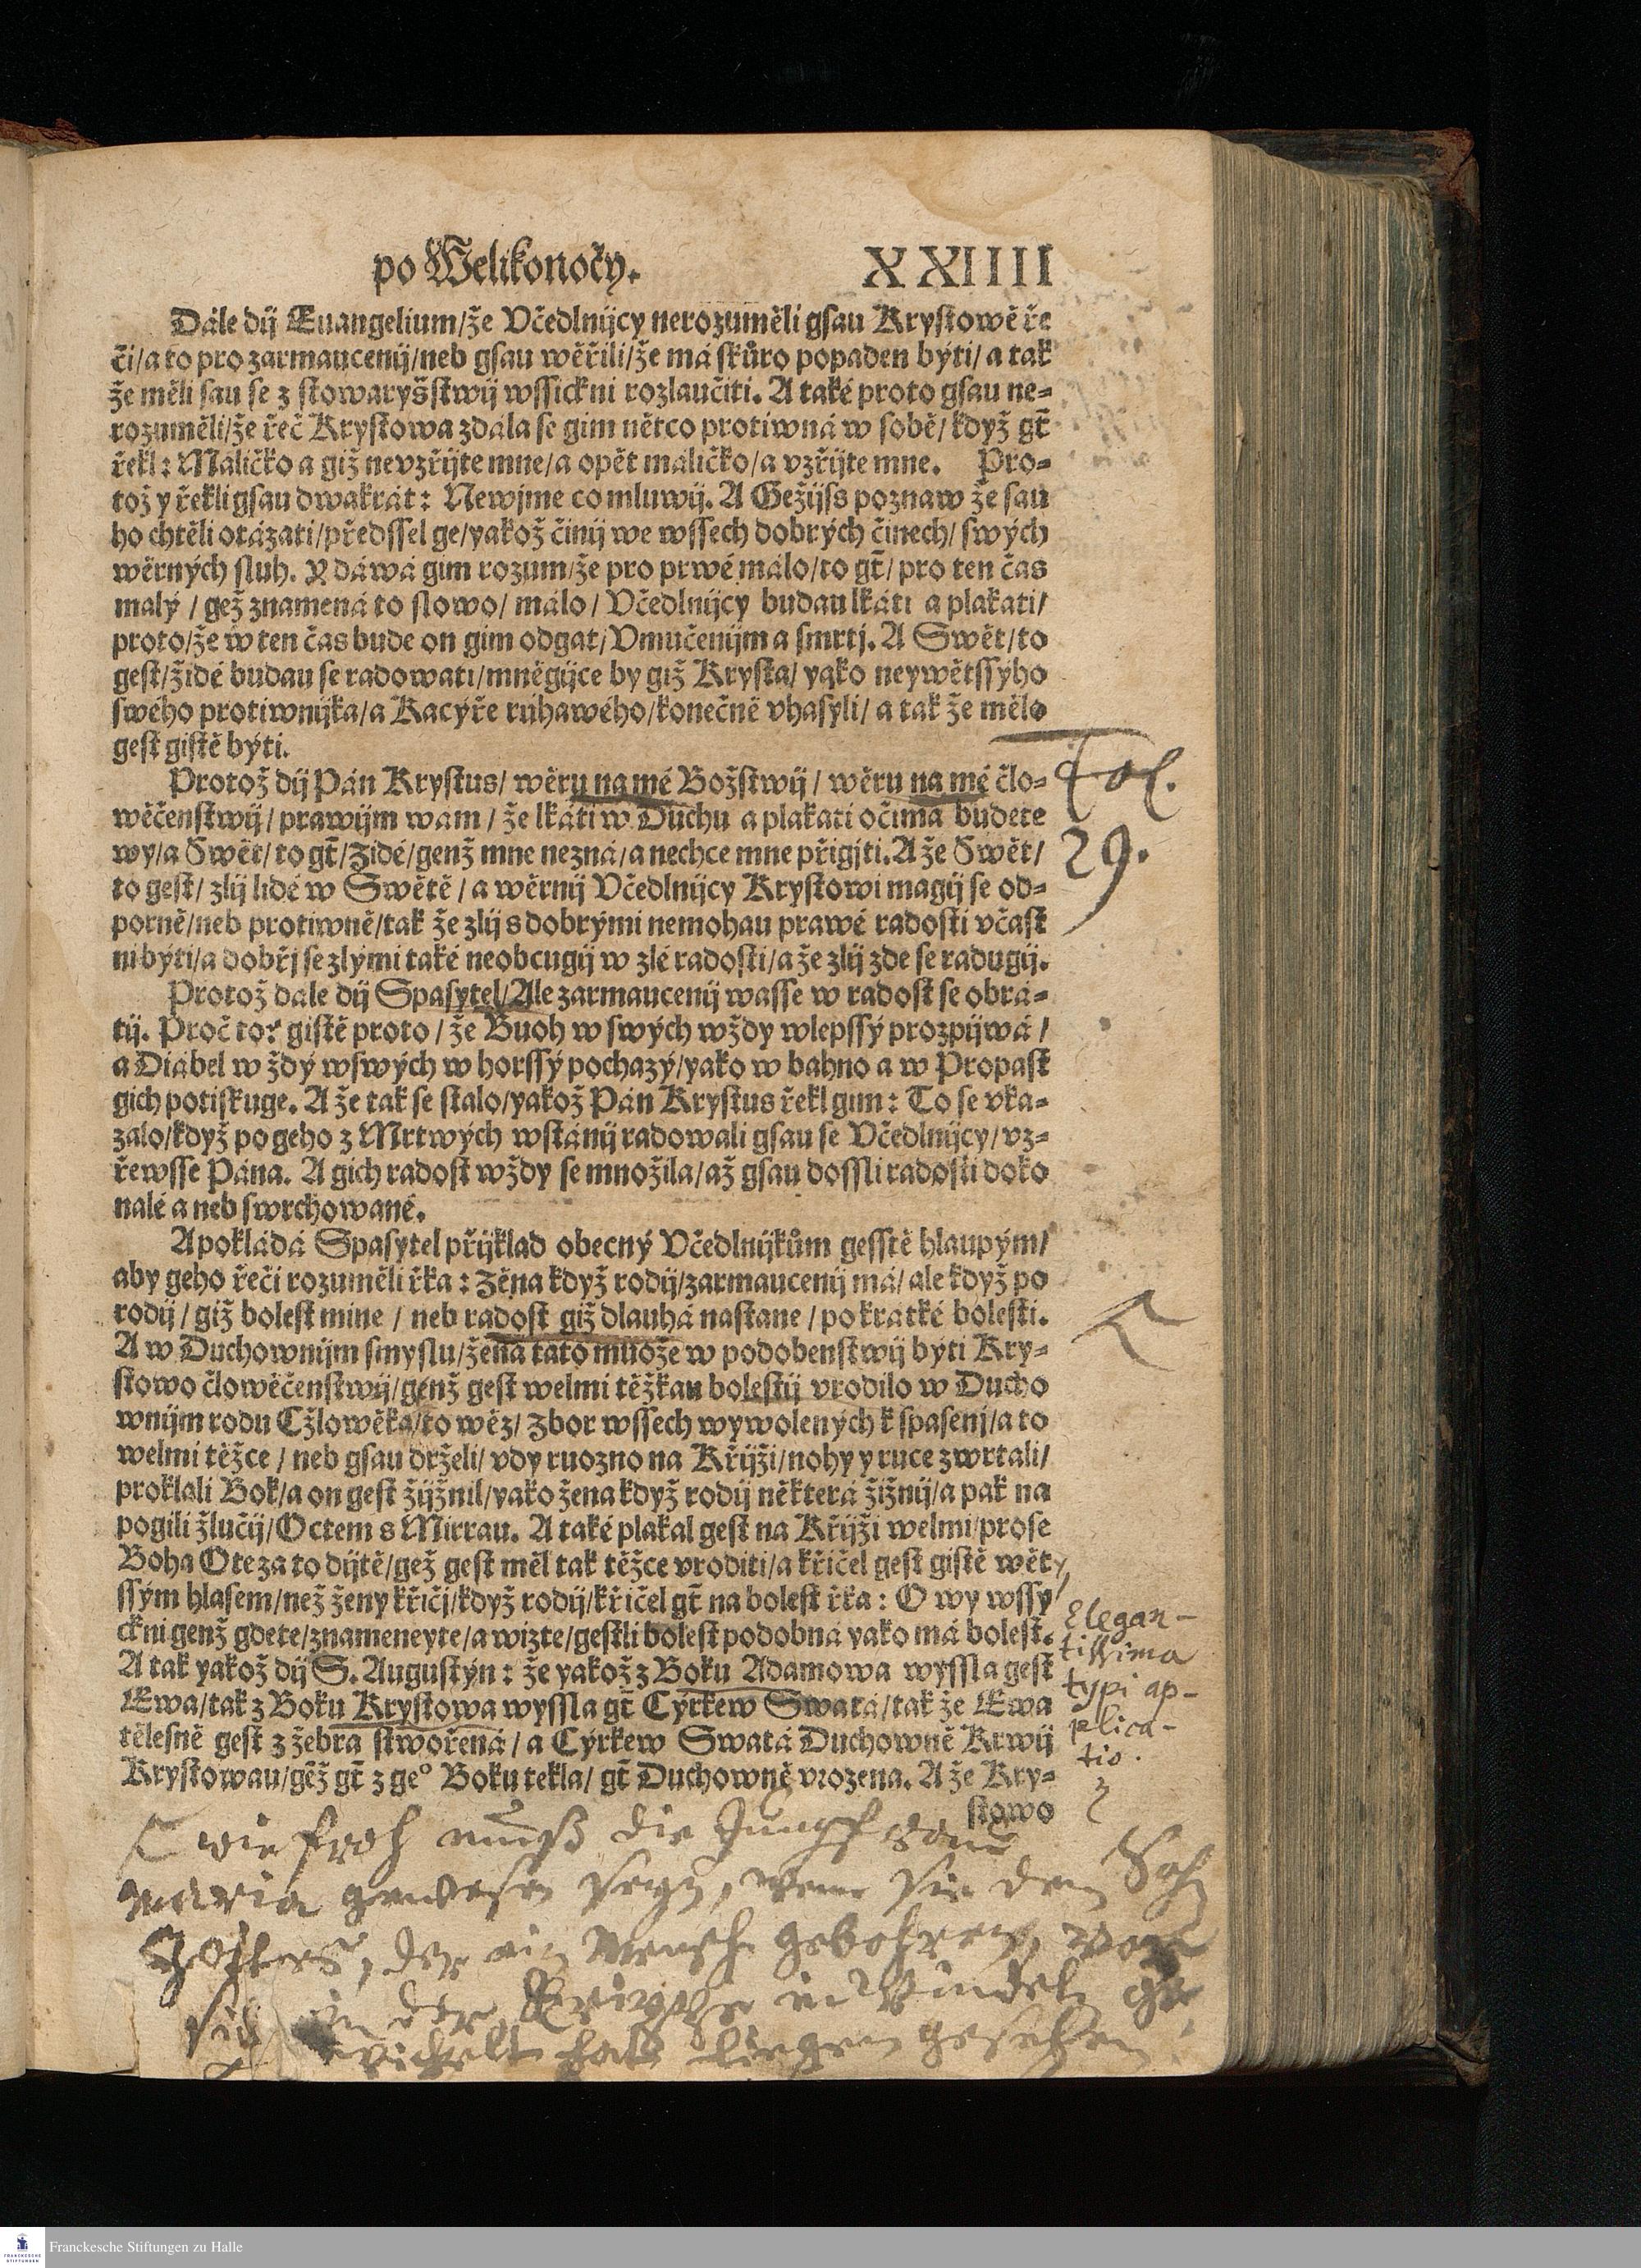 po Welikonočy. XXIIII
Dále dij Euangelium/že Včedlnijcy nerozuměli gsau Krystowě ře
či/a to pro zarmaucenij/neb gsau wěřili/že má skůro popaden býti/ a tak
že měli sau se z stowaryšstwij wssickni rozlaučiti. A také proto gsau ne-
rozuměli/že řeč Krystowa zdála se gim nětco protiwná w sobě/ když gt̄
řekl: Máličko a giž nevzřijte mne/a opět máličko/a vzřijte mne. Pro-
tož y řekli gsau dwakrát: Newjme co mluwij. A Gežijss poznaw že sau
ho chtěli otázati/předssel ge/yakož činij we wssech dobrých činech/ swých
wěrných sluh. Y dáwá gim rozum/že pro prwé málo/to gt̄/ pro ten čas
malý / gež znamená to slowo/ málo / Včedlnijcy budau lkáti a plakati/
proto/že w ten čas bude on gim odgat/Vmučenijm a smrtj. A Swět/to
gest/židé budau se radowati/mněgijce by giž Krysta/ yako neywětssyho
swého protiwnijka/a Kacýře rúhawého/konečně vhasyli/ a tak že mělo
gest gistě býti.
Protož dij Pán Krystus/ wěru na mé Božstwij / wěru na mé člo-
wěčenstwij/ prawijm wam / že lkáti w Duchu a plakati očima budete
wy/a Swět/ to gt̄/Židé/genž mne nezná/a nechce mne přigjti. A že Swět/
to gest/ zlij lidé w Swětě / a wěrnij Včedlnijcy Krystowi magij se od-
porně/neb protiwně/tak že zlij s dobrými nemohau prawé radosti včast
ni býti/a dobřj se zlými také neobcugij w zlé radosti/a že zlij zde se radugij.
Protož dále dij Spasytel/Ale zarmaucenij wasse w radost se obrá-
tij. Proč to? gistě proto / že Buoh w swých wždy wlepssý prozpijwá /
a Diábel w ždý wswých w horssý pochazý/yako w bahno a w Propast
gich potiskuge. A že tak se stalo/yakož Pán Krystus řekl gim: To se vka-
zalo/když po geho z Mrtwých wstánij radowali gsau se Včedlnijcy/ vz-
řewsse Pána. A gich radost wždy se množila/až gsau dossli radosti doko
nalé a neb swrchowané.
A pokládá Spasytel přijklad obecný Včedlnijkům gesstě hlaupým/
aby geho řeči rozuměli řka: Žena když rodij/zarmaucenij má/ ale když po
rodij / giž bolest mine / neb radost giž dlauhá nastane / po krátké bolesti.
A w Duchownijm smyslu/žena tato muože w podobenstwij býti Kry-
stowo člowěčenstwij/genž gest welmi těžkau bolestij vrodilo w Ducho
wnijm rodu Cžlowěka/to wěz/ Zbor wssech wywolených k spasenj/a to
welmi těžce / neb gsau drželi/ vdy ruozno na Křijži/nohy y ruce zwrtali/
proklali Bok/a on gest žijžnil/yako žena když rodij některá žižnij/a pak na
pogili žlučij/Octem s Mirrau. A také plakal gest na Křijži welmi/prose
Boha Otce za to dijtě/gež gest měl tak těžce vroditi/a křičel gest gistě wět
ssým hlasem/než ženy křičj/když rodij/křičel gt̄ na bolest řka: O wy wssy
ckni genž gdete/znameneyte/a wizte/gestli bolest podobná yako má bolest.
A tak yakož dij S. Augustýn: že yakož z Boku Adamowa wyssla gest
Ewa/tak z Boku Krystowa wyssla gt̄ Cýrkew Swatá/tak že Ewa
tělesně gest z žebra stwořená/ a Cýrkew Swatá Duchowně Krwij
Krystowau/gěž gt̄ z ge° Boku tekla/ gt̄ Duchowně vrozena. A že Kry-
stowo
fol.
29.
Elegan-
tissima
typi ap-
plica-
tio.
wie froh muß die Jungfrau
Maria gewesen seyn, wenn sie den Sohn
Gottes, der ein Mensch gebohren, vor
sich in der Krippe in Windeln ge-
wickelt hat liegen gesehen
Franckesche Stiftungen zu Halle